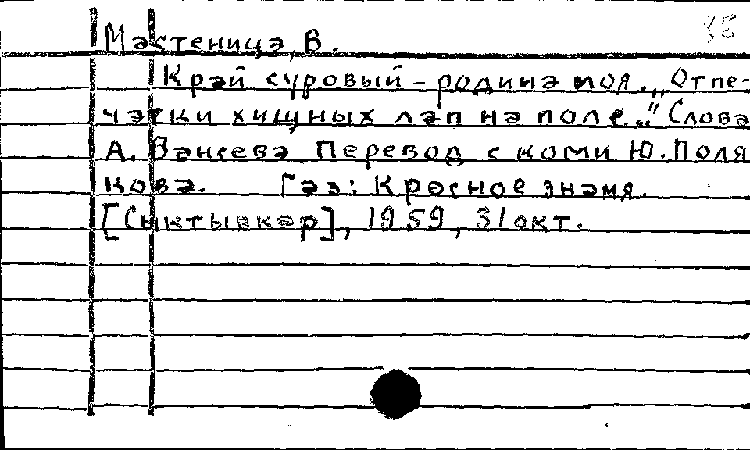 38
Мастеница, В.
Край суровый – родина моя. „Отпе-
чатки хищных лап на поле..." Слова
А. Ванеева Перевод с коми Ю. Поля
кова. Газ: Красное знамя.
[Сыктывкар], 1959, 31 окт.